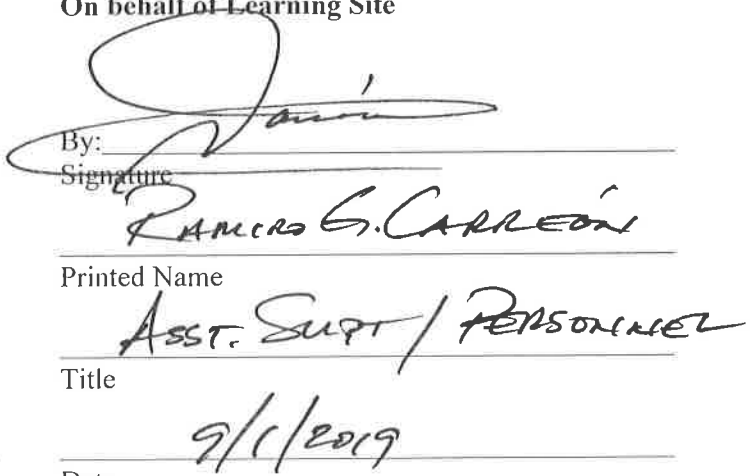 On behalf of Learning Site
By:
Signature
RAMIRO G. CARREÓN
Printed Name
ASST. SUPT / PERSONNEL
Title
9/1/2019
Date